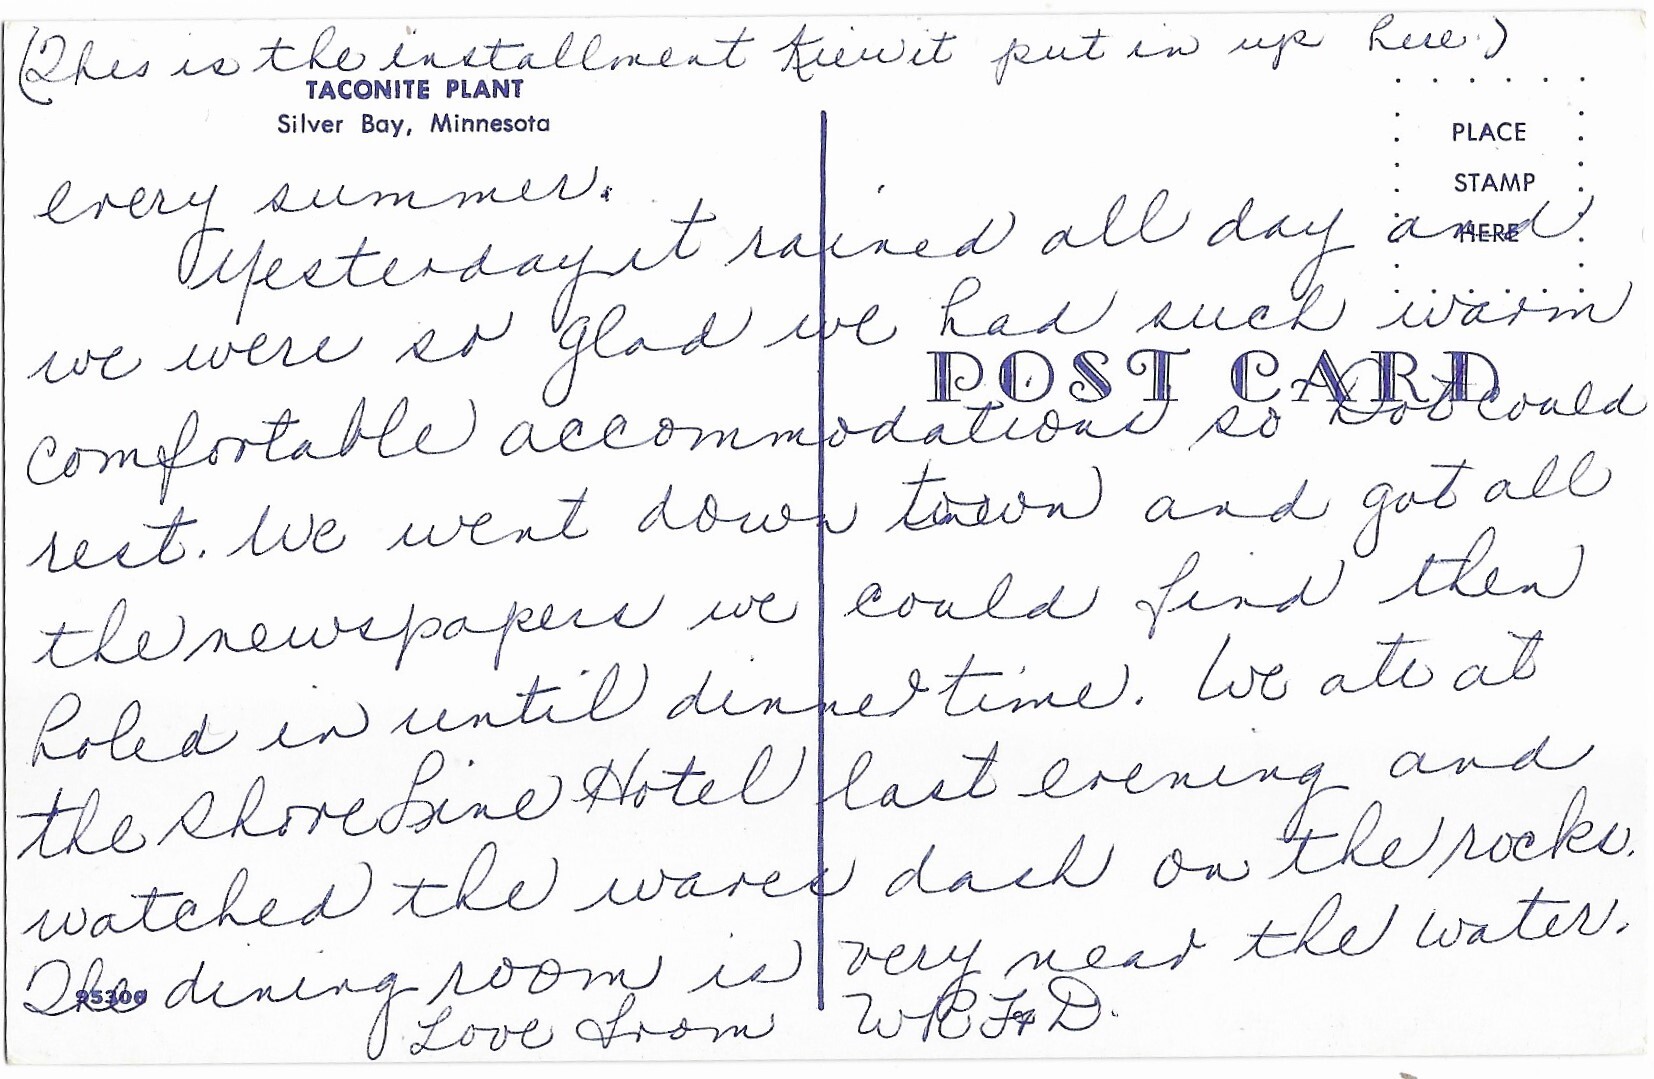 (This is the installment Kiewit put in up here.)
TACONITE PLANT
Silver Bay, Minnesota
PLACE
STAMP
HERE
every summer.
Yesterday it rained all day and
we were so glad we had such warm
POST CARD
comfortable accommodations so Dot could
rest. We went down town and got all
the newspapers we could find then
holed in until dinner time. We ate at
the Shore Line Hotel last evening and
watched the waves dash on the rocks.
The dining room is very near the water.
95300
Love from WRF & D.